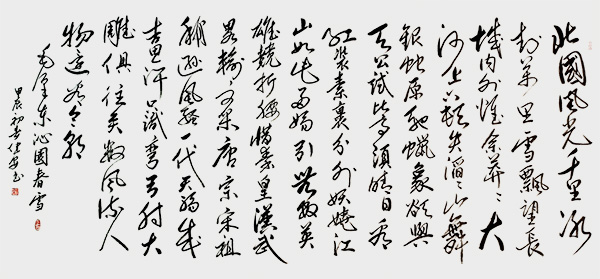 北國風光千里冰
封萬里雪飄望長
城內外惟余莽々大
河上下頓失滔々山舞
銀蛇原馳蠟象欲與
天公試比高須晴日看
紅裝素裹分外妖嬈江
山如此多嬌引無數英
雄競折腰惜秦皇漢武
略輸文采唐宗宋祖
稍遜風騷一代天驕成
吉思汗只識彎弓射大
雕俱往矣數風流人
物還看今朝
毛澤東沁園春雪
甲辰初春